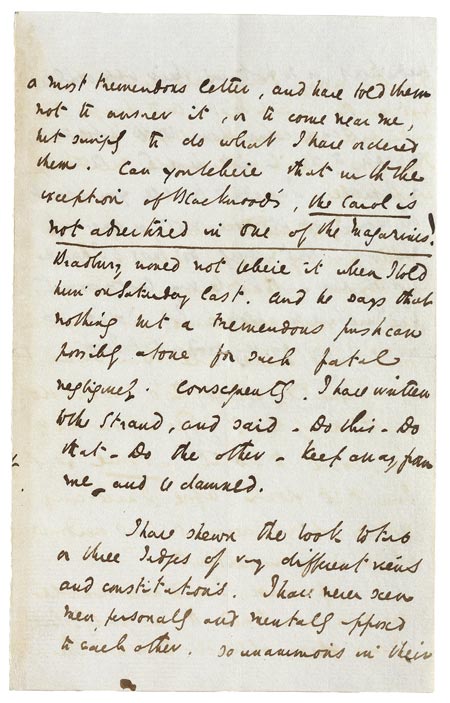 a most tremendous letter, and have told them
not to answer it, or to come near me,
but simply to do what I have ordered
them. Can you believe that with the
exception of Blackwood's, the Carol is
not advertized in one of the Magazines!
Bradbury would not believe it when I told
him on Saturday last. And he says that
nothing but a tremendous push can
possibly atone for such fatal
negligence. Consequently, I have written
to the Strand, and said - Do this - Do
that - Do the other - Keep away from
me - and be damned.
I have shewn the book to two
or three Judges of very different views
and constitutions. I have never seen
men, personally and mentally opposed
to each other, so unanimous in their